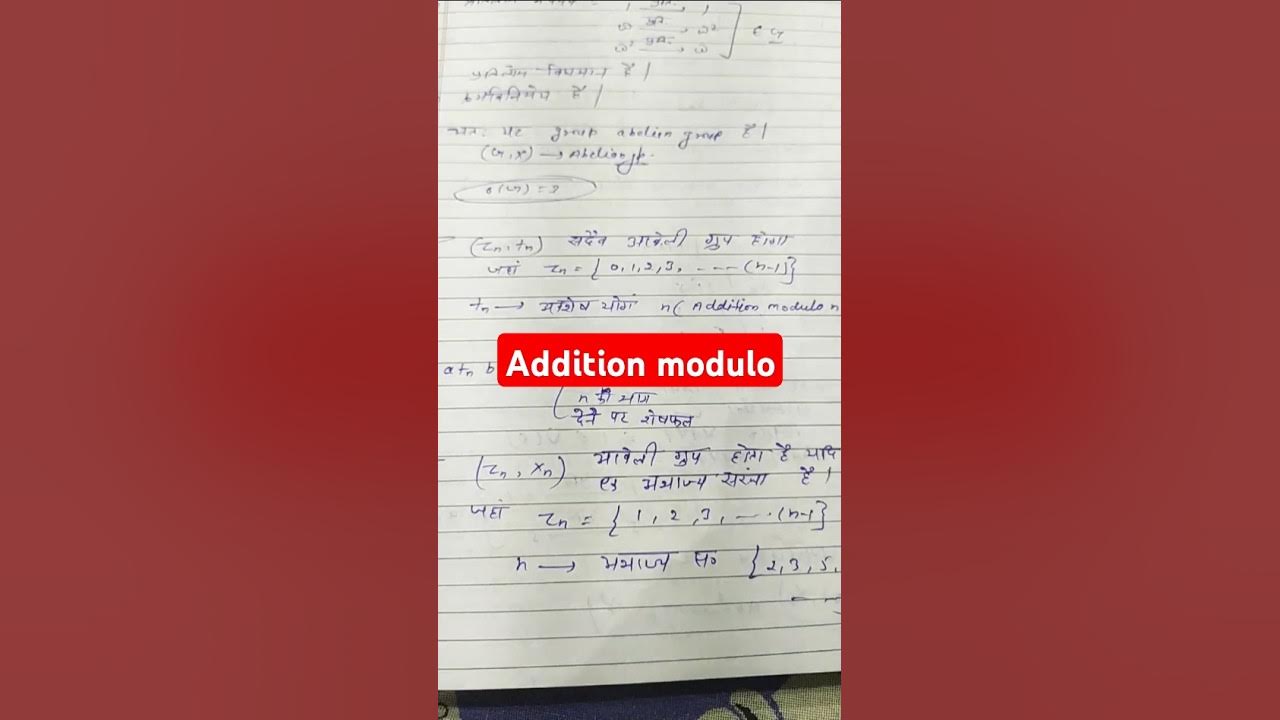 1, 1
ω, ω²
ω², ω
] ∈ G
प्रतिलोम विद्यमान है |
क्रमविनिमेय है |
अतः यह group abelian group है |
(G, x) → Abelian gp.
o(G) = 3
(Zn, +n) सदैव आबेली ग्रुप होगा
जहां Zn = { 0, 1, 2, 3, ---- (n-1)}
+n → योग n ( Addition modulo n
Addition modulo
a +n b
n का भाग
देने पर शेषफल
(Zn, xn) आबेली ग्रुप होता है यदि
अभाज्य संख्या है |
जहां Zn = { 1, 2, 3, --- (n-1}
n → अभाज्य सं० { 2, 3, 5,